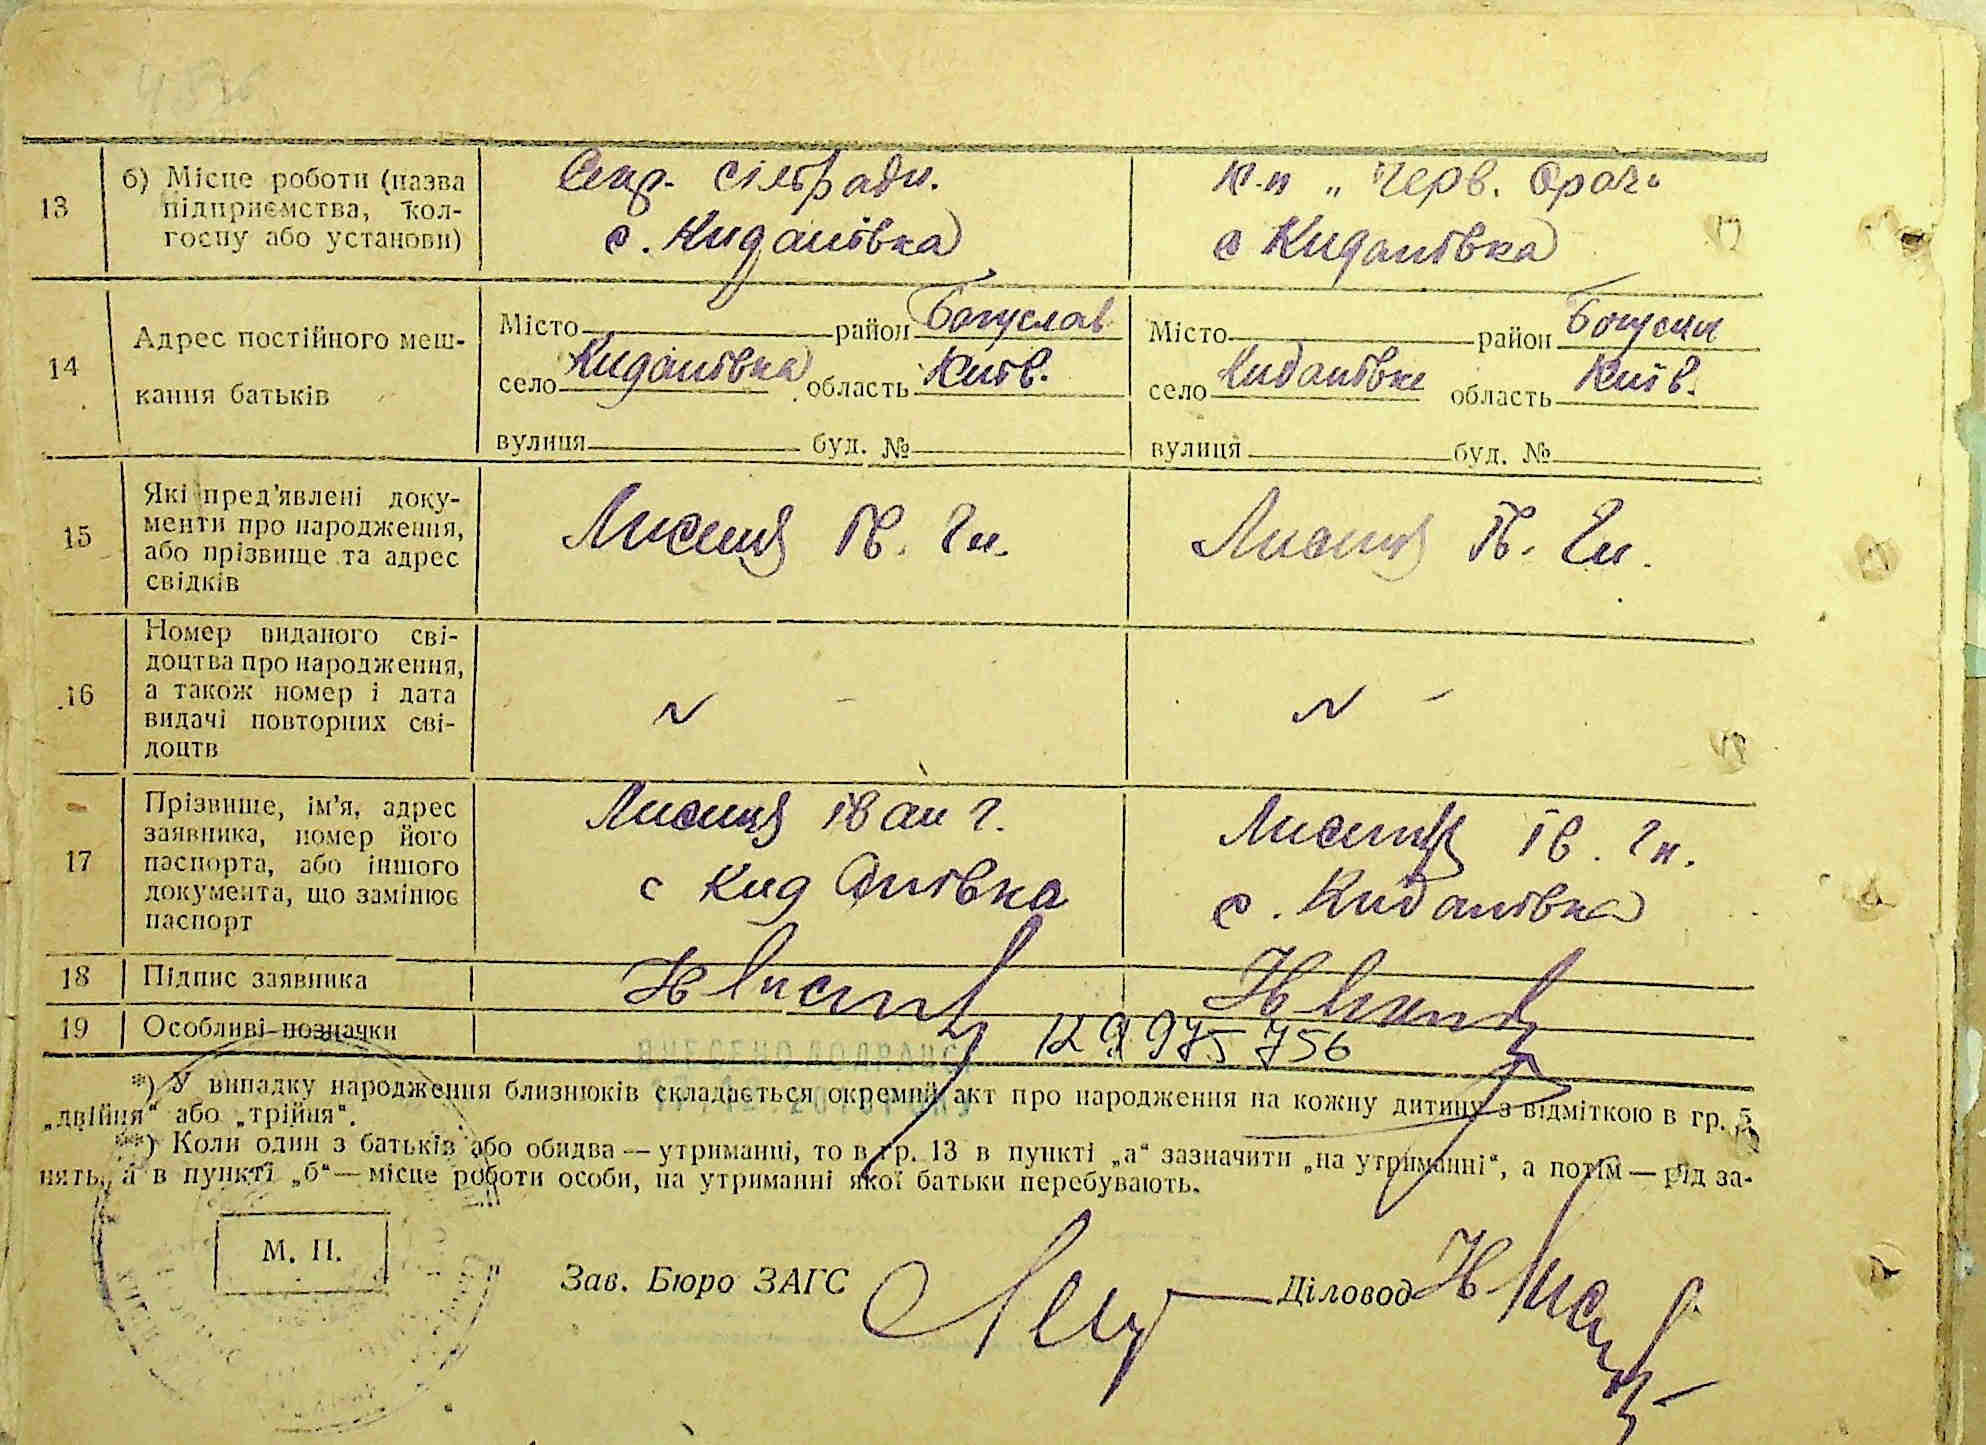 13
б) Місце роботи (назва підприємства, кол-
госпу або установи)
Секр. сільради.
с. Киданівка
к-п „Черв. Орач“
с Киданівка
14
Адрес постійного меш-
кання батьків
Місто район Богуслав
село Киданівка область Київ.
вулиця буд. №
Місто район Богуслав
село Киданівка область Київ.
вулиця буд. №
15
Які пред'явлені доку-
менти про народження,
або прізвище та адрес
свідків
Лисиця Ів. Гн.
Лисиця Ів. Гн.
16
Номер виданого сві-
доцтва про народження,
а також номер і дата
видачі повторних сві-
доцтв
17
Прізвище, ім'я, адрес
заявника, номер його
паспорта, або іншого
документа, що замінює
паспорт
Лисиця Іван Г.
с Киданівка
Лисиця Ів. Гн.
с. Киданівка
18
Підпис заявника
19
Особливі позначки
ВНЕСЕНО ДО ДРАЦС
*) У випадку народження близнюків складається окремий акт про народження на кожну дитину з відміткою в гр. 5
„двійня“ або „трійня“.
**) Коли один з батьків або обидва — утриманці, то в гр. 13 в пункті „а“ зазначити „на утриманні“, а потім — рід за-
нять, а в пункті „б“ — місце роботи особи, на утриманні якої батьки перебувають.
М. П.
Зав. Бюро ЗАГС
Діловод